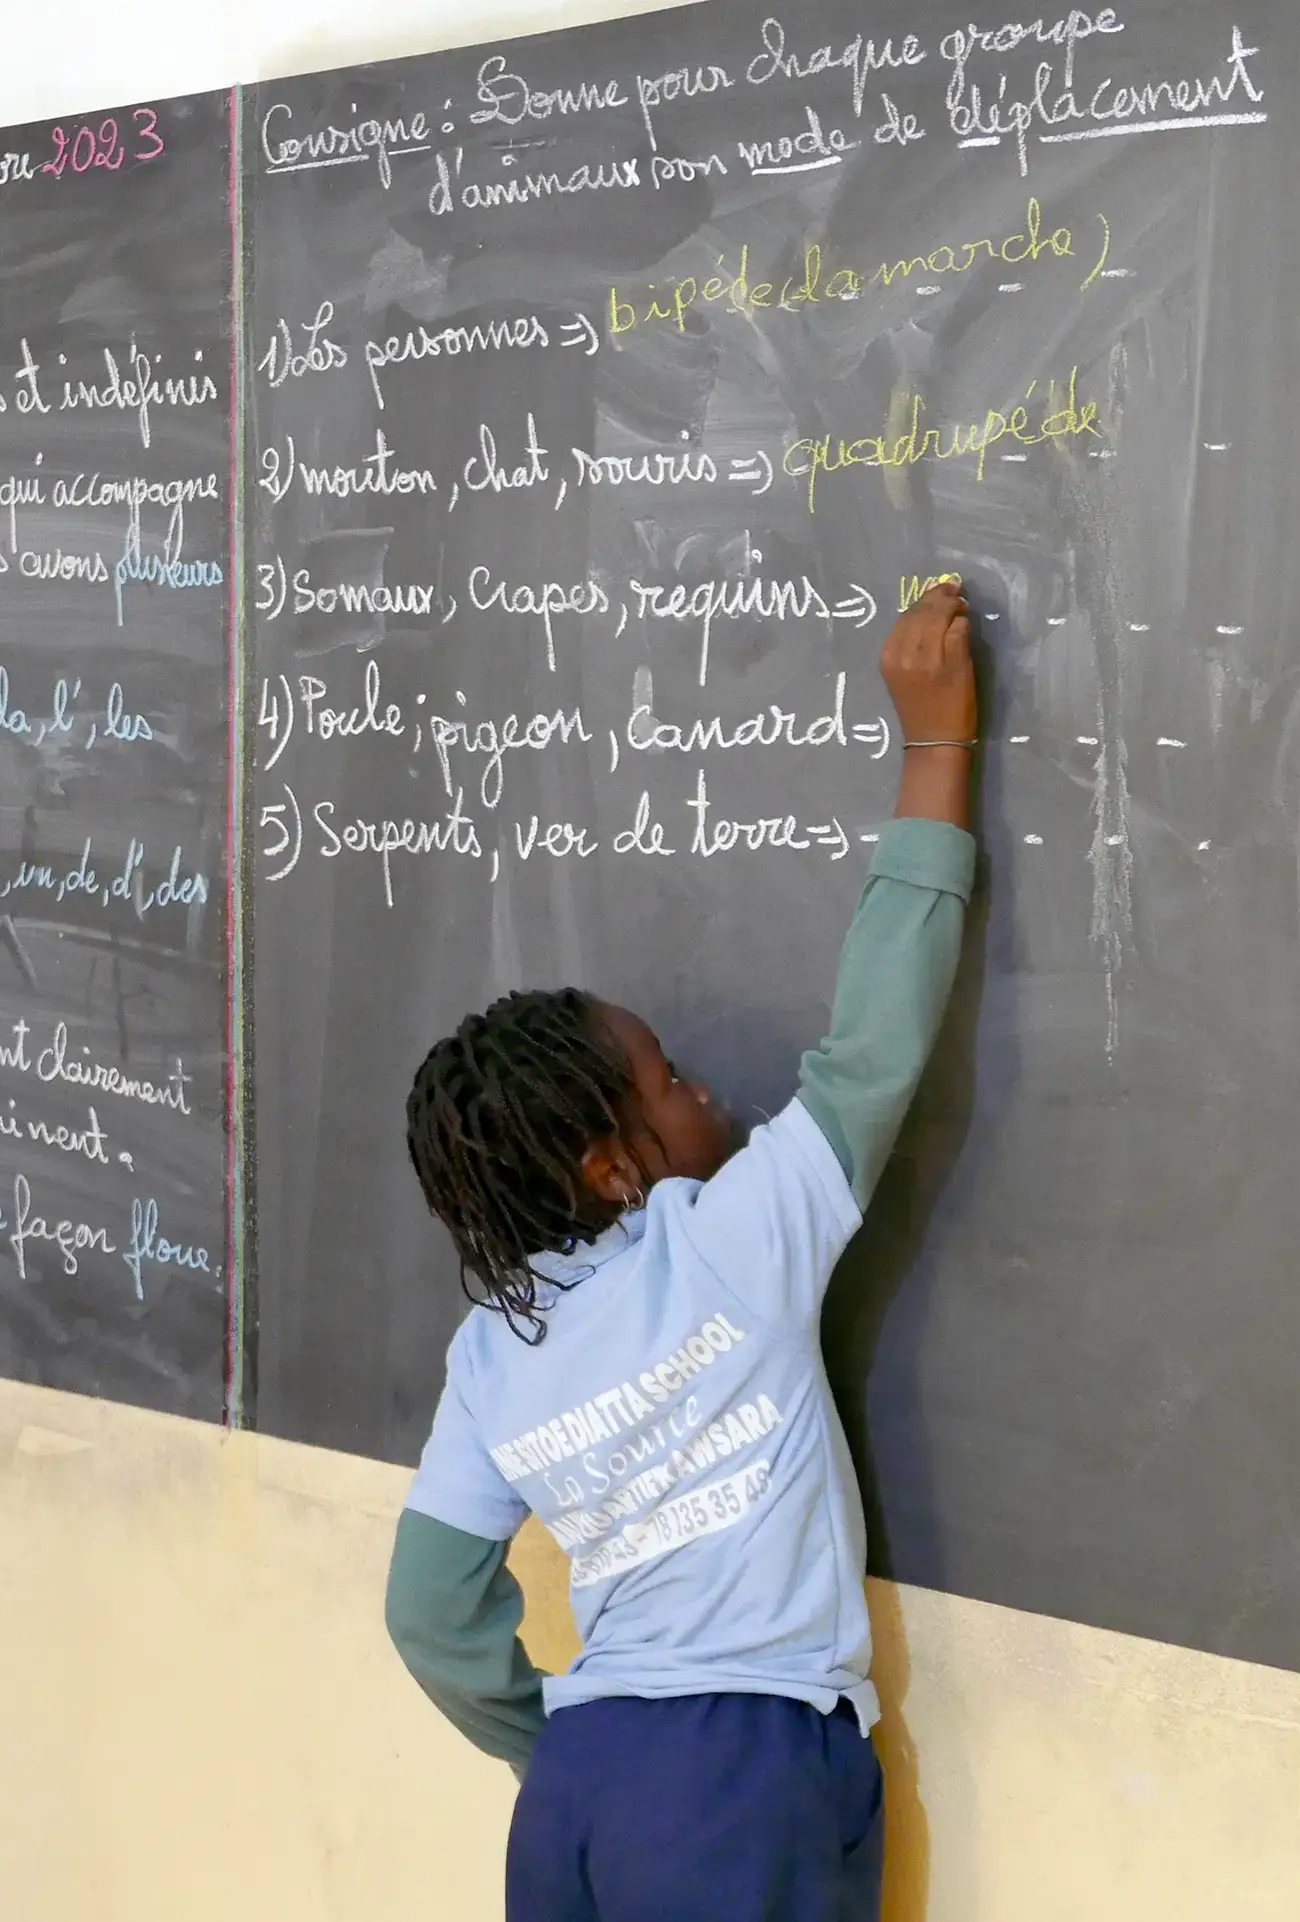 2023
et indéfinis
qui accompagne
avons plusieurs
la, l', les
, un, de, d', des
clairement
façon floue.
Consigne : Donne pour chaque groupe
d'animaux son mode de déplacement
1) Les personnes => bipéde (la marche)
2) mouton, chat, souris => quadrupéde
3) Somaux, Crapes, requins =>
4) Poule ; pigeon, Canard =>
5) Serpents, ver de terre =>
DIATTA SCHOOL
La Source
KAWSARA
78 135 35 48